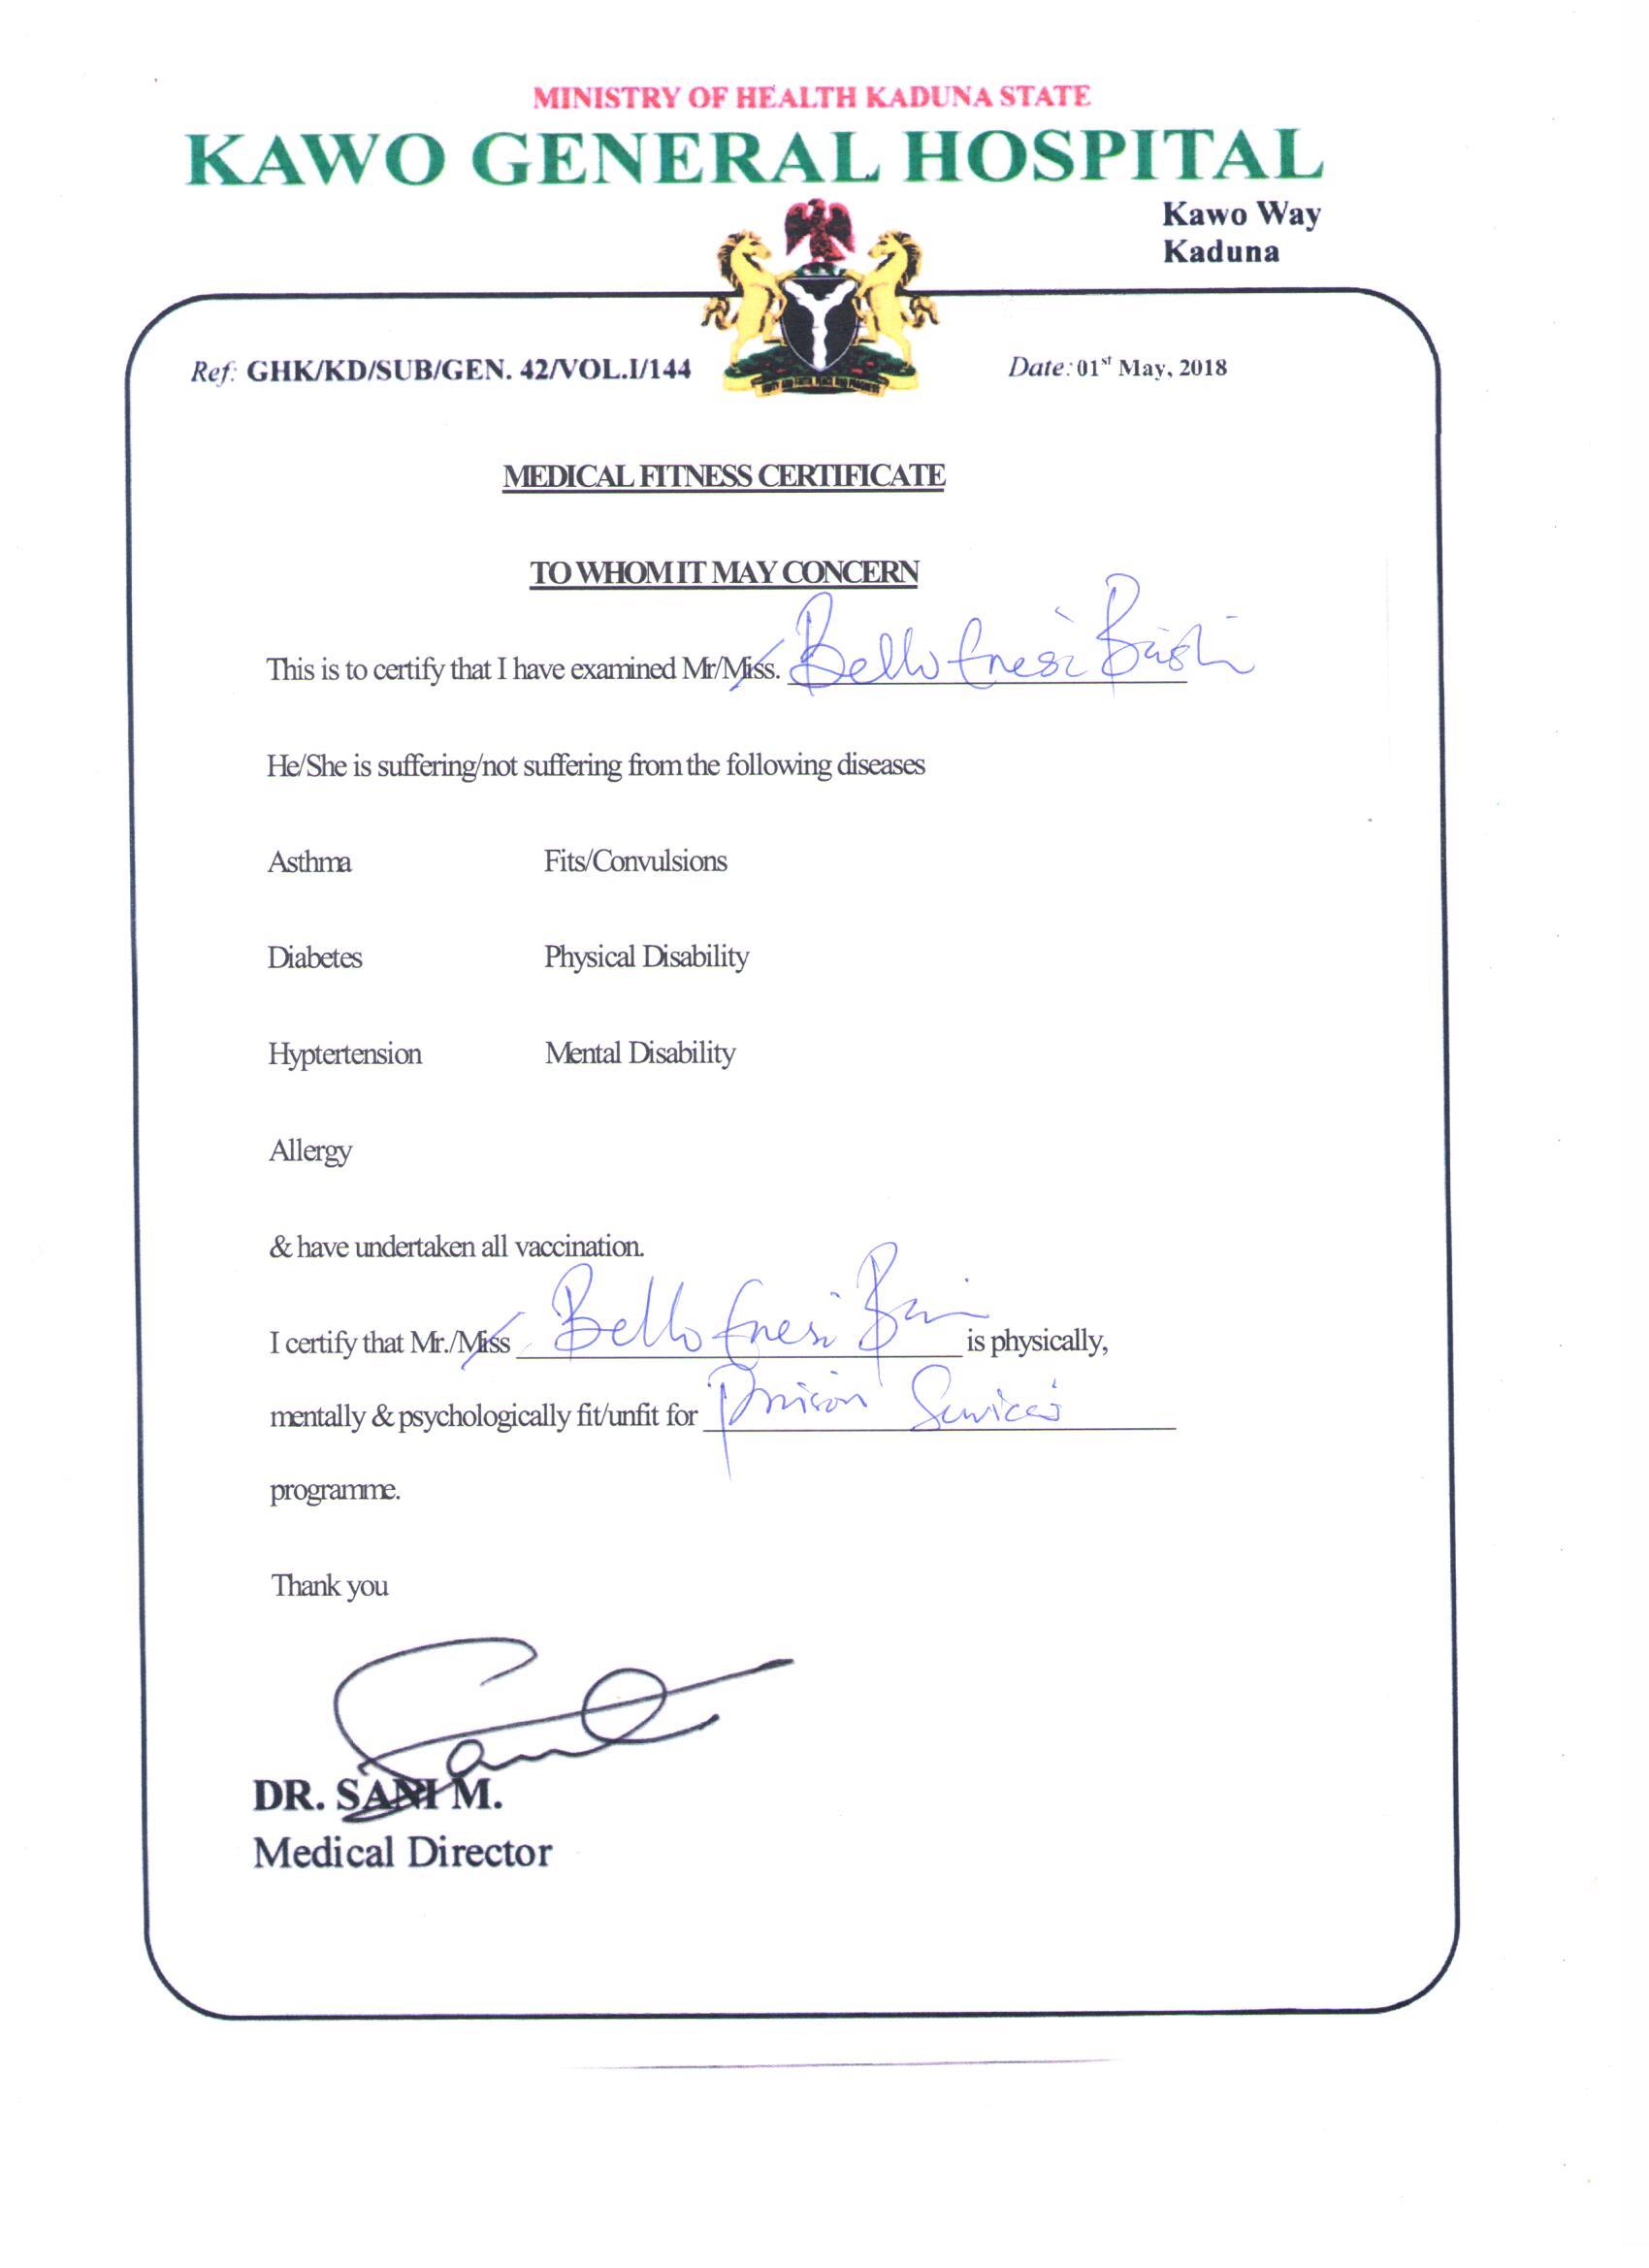 MINISTRY OF HEALTH KADUNA STATE
KAWO GENERAL HOSPITAL
Kawo Way
Kaduna
Ref: GHK/KD/SUB/GEN. 42/VOL.I/144
Date: 01st May, 2018
MEDICAL FITNESS CERTIFICATE
TO WHOM IT MAY CONCERN
This is to certify that I have examined Mr/Miss. Bello Enesi
He/She is suffering/not suffering from the following diseases
Asthma Fits/Convulsions
Diabetes Physical Disability
Hyptertension Mental Disability
Allergy
& have undertaken all vaccination.
I certify that Mr./Miss Bello Enesi is physically,
mentally & psychologically fit/unfit for Prison Services
programme.
Thank you
DR. SANI M.
Medical Director